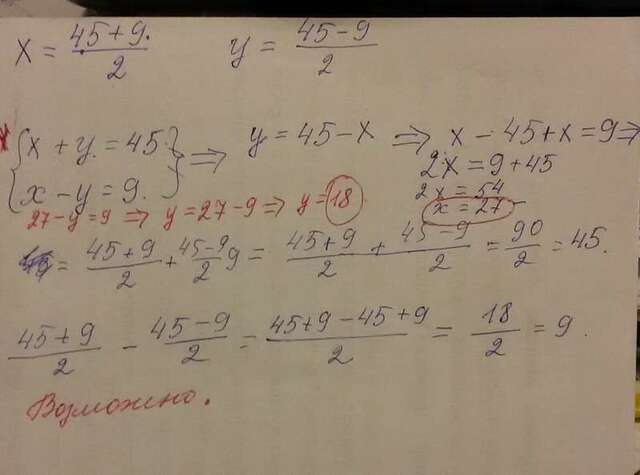 x = (45+9)/2 y = (45-9)/2
{x + y = 45} ⇒ y = 45 - x ⇒ x - 45 + x = 9 ⇒
{x - y = 9.} 2x = 9 + 45
2x = 54
27 - y = 9 ⇒ y = 27 - 9 ⇒ y = 18 x = 27
= (45+9)/2 + (45-9)/2 9 = (45+9)/2 + (45-9)/2 = 90/2 = 45.
(45+9)/2 - (45-9)/2 = (45+9-45+9)/2 = 18/2 = 9.
Возможно.